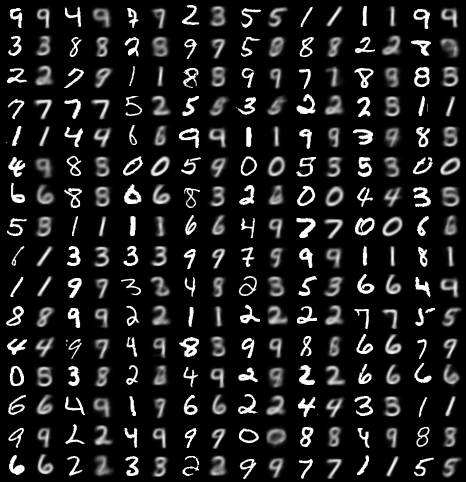 9 9 4 9 7 7 2 3 5 5 1 1 1 1 9 9
3 3 8 8 2 8 9 9 5 8 8 8 2 2 8 9
2 2 7 9 1 1 8 8 9 9 7 7 8 9 8 5
7 7 7 7 5 2 5 5 3 5 2 2 2 3 1 1
1 1 4 9 6 6 9 9 1 1 9 9 3 9 8 5
4 9 8 5 0 0 5 9 0 0 5 3 5 3 0 0
6 6 8 8 6 6 8 3 2 6 0 0 4 4 3 5
5 3 1 1 1 1 6 6 4 9 7 7 0 0 6 6
6 1 3 3 3 3 9 9 7 9 9 9 1 1 8 1
1 1 9 9 3 3 4 8 2 3 5 3 6 6 4 9
8 8 9 9 2 2 1 1 2 2 2 2 7 7 5 5
4 4 9 7 4 9 8 3 9 9 8 8 6 6 7 9
0 5 3 8 2 8 4 9 2 9 2 2 6 6 6 6
6 6 4 9 1 9 6 6 2 2 4 4 3 3 1 1
9 9 2 2 4 9 9 9 0 0 8 8 4 9 8 8
6 6 2 2 3 3 2 2 9 9 7 7 1 1 5 5